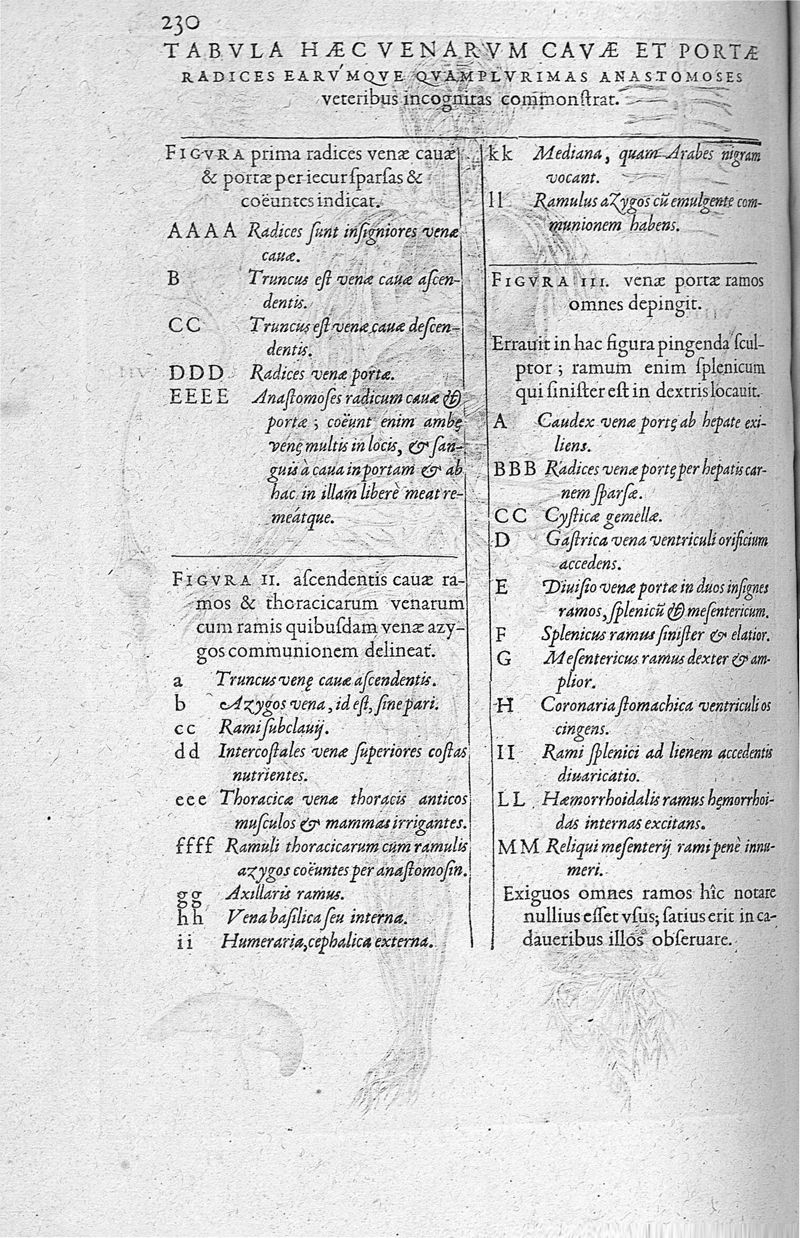 230
TABVLA HÆC VENARVM CAVÆ ET PORTÆ
RADICES EARVMQVE QVAMPLVRIMAS ANASTOMOSES
veteribus incognitas commonſtrat.
FIGVRA prima radices venæ cauæ
& portæ per iecur ſparſas &
coëuntes indicat.
A A A A Radices ſunt inſigniores venæ
cauæ.
B Truncus eſt venæ cauæ aſcen-
dentis.
CC Truncus eſt venæ cauæ deſcen-
dentis.
DDD Radices venæ portæ.
EEEE Anaſtomoſes radicum cauæ &
portæ ; coëunt enim ambę
venę multis in locis, & ſan-
guis à caua in portam & ab
hac in illam liberè meat re-
meátque.
FIGVRA II. aſcendentis cauæ ra-
mos & thoracicarum venarum
cum ramis quibuſdam venæ azy-
gos communionem delineat.
a Truncus venę cauæ aſcendentis.
b Azygos vena, id eſt, ſine pari.
cc Rami ſubclauij.
dd Intercoſtales venæ ſuperiores coſtas
nutrientes.
eee Thoracicæ venæ thoracis anticos
muſculos & mammas irrigantes.
ffff Ramuli thoracicarum cum ramulis
azygos coëuntes per anaſtomoſin.
gg Axillaris ramus.
hh Vena baſilica ſeu interna.
ii Humeraria, cephalica externa.
kk Mediana, quam Arabes nigram
vocant.
ll Ramulus azygos cũ emulgente com-
munionem habens.
FIGVRA III. venæ portæ ramos
omnes depingit.
Errauit in hac figura pingenda ſcul-
ptor ; ramum enim ſplenicum
qui ſiniſter eſt in dextris locauit.
A Caudex venæ portę ab hepate exi-
liens.
BBB Radices venæ portę per hepatis car-
nem ſparſæ.
CC Cyſticæ gemellæ.
D Gaſtrica vena ventriculi orificium
accedens.
E Diuiſio venæ portæ in duos inſignes
ramos, ſplenicũ & meſentericum.
F Splenicus ramus ſiniſter & elatior.
G Meſentericus ramus dexter & am-
plior.
H Coronaria ſtomachica ventriculi os
cingens.
II Rami ſplenici ad lienem accedentis
diuaricatio.
LL Hæmorrhoidalis ramus hęmorrhoi-
das internas excitans.
MM Reliqui meſenterij rami penè innu-
meri.
Exiguos omnes ramos hîc notare
nullius eſſet vſus; ſatius erit in ca-
daueribus illos obſeruare.